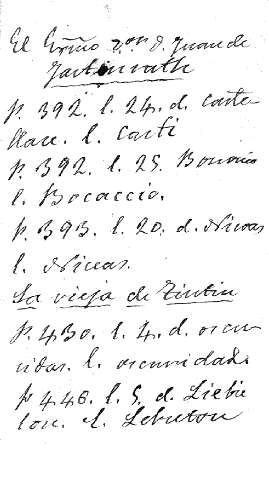 El Eniño von d. Juan de
Hartzenrath
p. 392. l. 24. d. caste
llare. l. casti
p. 392. l. 25. Bononio
l. Bocaccio.
p. 393. l. 20. d. Nicvas
l. Niceas.
La vieja de Tintin
p. 430. l. 4. d. oscu
vidas. l. oscuridad.
p 446. l. 5. d. Liebie
ton. l. Lebuton